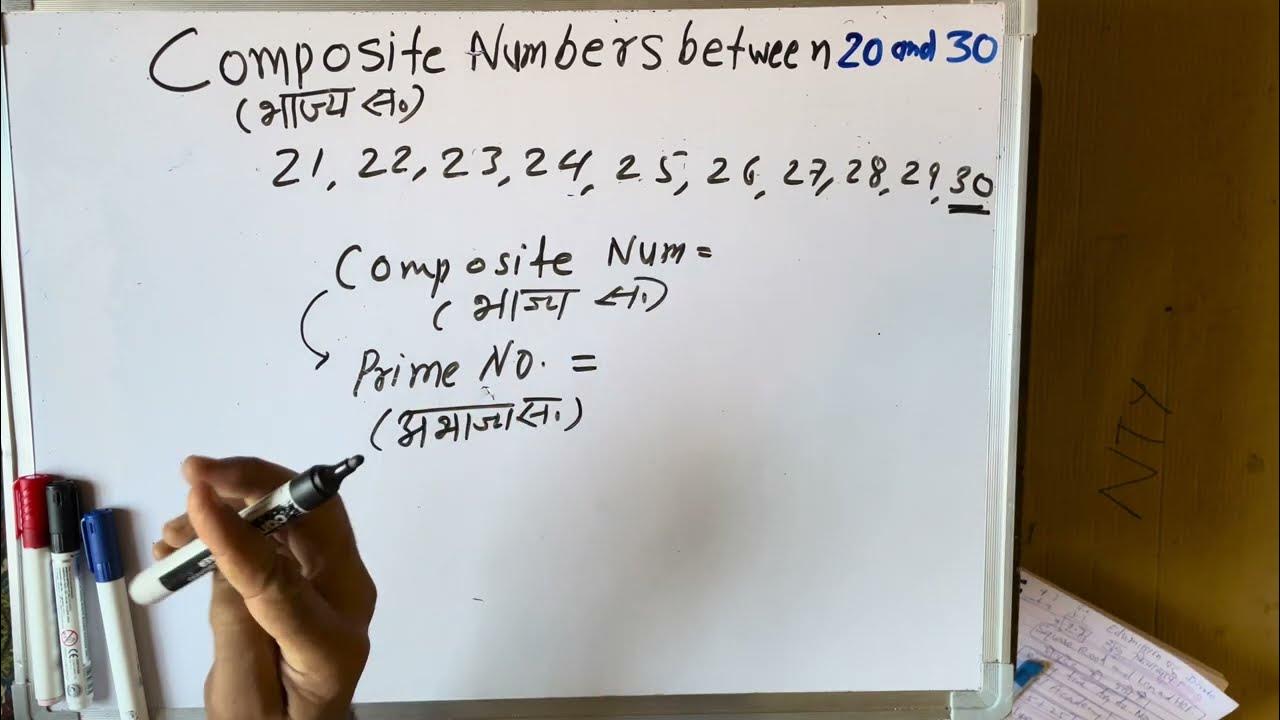 Composite Numbers between 20 and 30
(भाज्य सं०)
21, 22, 23, 24, 25, 26, 27, 28, 29, 30
Composite Num =
(भाज्य सं.)
Prime No. =
(अभाज्य सं.)
NTY